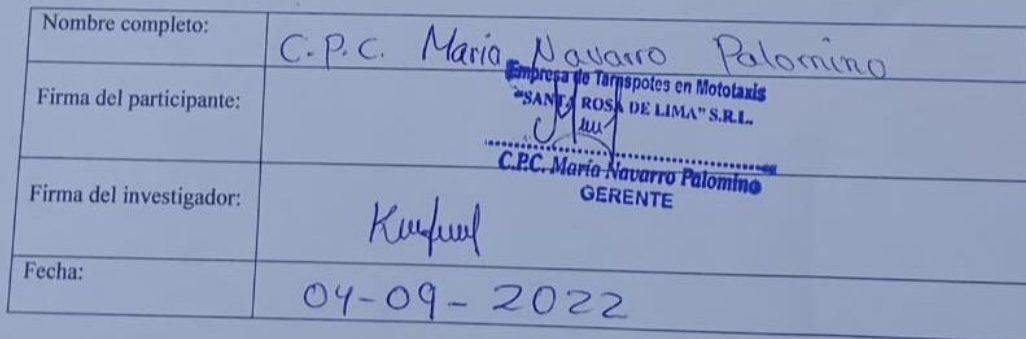 Nombre completo:
C.P.C. María Navarro Palomino
Firma del participante:
Empresa de Tarnspotes en Mototaxis
"SANTA ROSA DE LIMA" S.R.L.
C.P.C. María Navarro Palomino
GERENTE
Firma del investigador:
Fecha:
04-09-2022